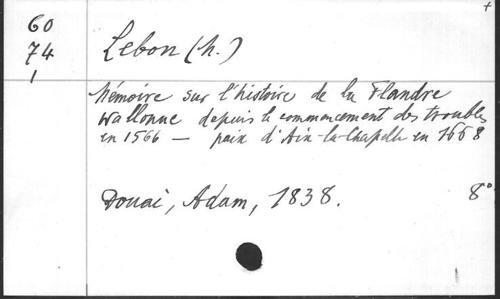 +
60
74
1
Lebon (h.)
Mémoire sur l'histoire de la Flandre
Wallonne depuis le commencement des troubles
en 1566 — paix d'Aix-la-Chapelle en 1668
Douai, Adam, 1838. 8°